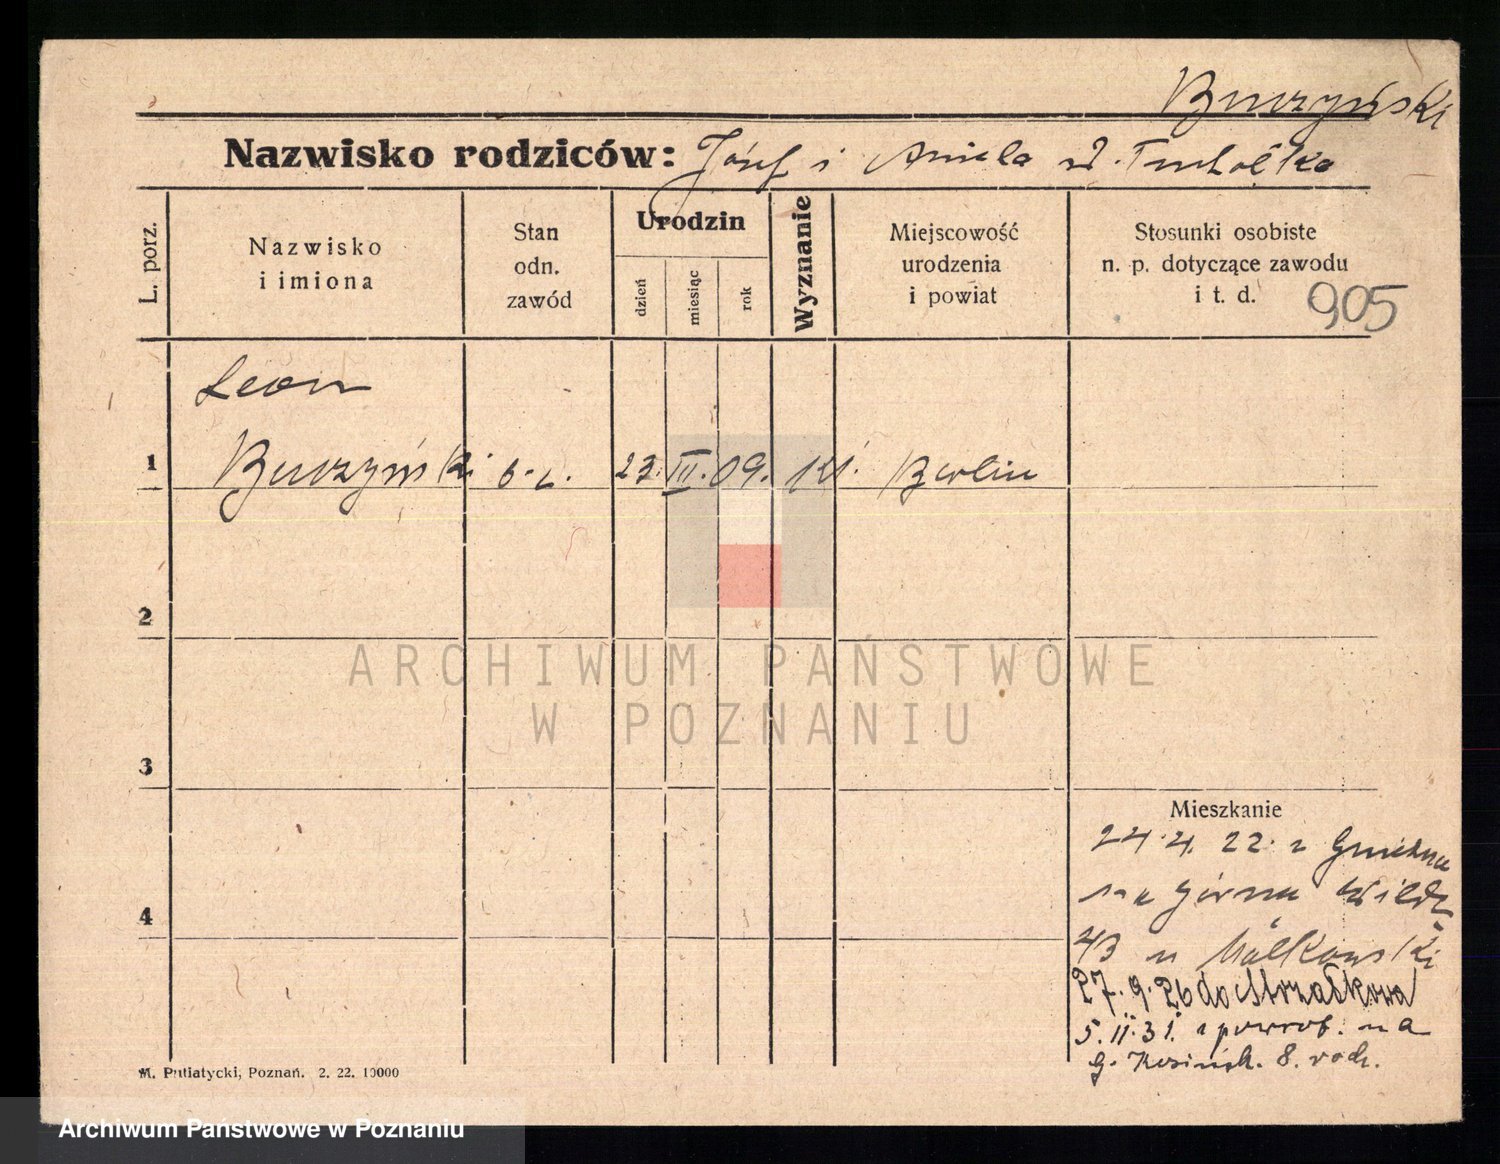 Buczyński
Nazwisko rodziców: Józef i Aniela z d. Tuchołka
L. porz.
Nazwisko
i imiona
Stan
odn.
zawód
Urodzin
dzień
miesiąc
rok
Wyznanie
Miejscowość
urodzenia
i powiat
Stosunki osobiste
n. p. dotyczące zawodu
i t. d.
905
Leon
1 Buczyński 23. III. 09. kt. Berlin
2
ARCHIWUM PAŃSTWOWE
W POZNANIU
3
Mieszkanie
24.4.22. z Gniezna
na Górna Wilda
4
43 u Małkowski
27.9.26 do Strzałkowa
5.II.31. z powrot. na
g. 8. rodz.
M. Putiatycki, Poznań. 2. 22. 10000
Archiwum Państwowe w Poznaniu